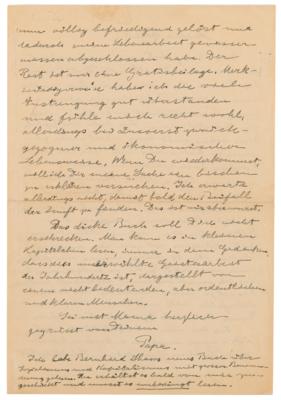 nun völlig befriedigend gelöst und
dadurch meine Lebensarbeit gewisser
massen abgeschlossen habe. Der
Rest ist nur eine Gratisbeilage. Merk-
würdigerweise habe ich die viele
Anstrengung gut überstanden
und fühle mich recht wohl,
allerdings bei äusserst zurück-
gezogener und ökonomischer
Lebensweise. Wenn Du wiederkommst,
will ich Dir meine Sache ein bischen
zu erklären versuchen. Ich erwarte
allerdings nicht, damit bald den Beifall
der Zunft zu finden. Das ist
Das dicke Buch soll Dich nicht
erschrecken. Man kann es in kleinen
Kapiteln lesen, immer in dem Gedanken,
dass dies
des Jahrhunderts ist, dargestellt von
einem nicht bedeutenden, aber ordentlichen
und klaren Menschen.
Sei mit Mama
gegrüsst von Deinem
Papa.
Ich habe Bernhard Shaws neues Buch über
Sozialismus und Kapitalismus mit grosser Bewun-
derung gelesen. Du erhältst es bald von mir
geschickt und musst es unbedingt lesen.